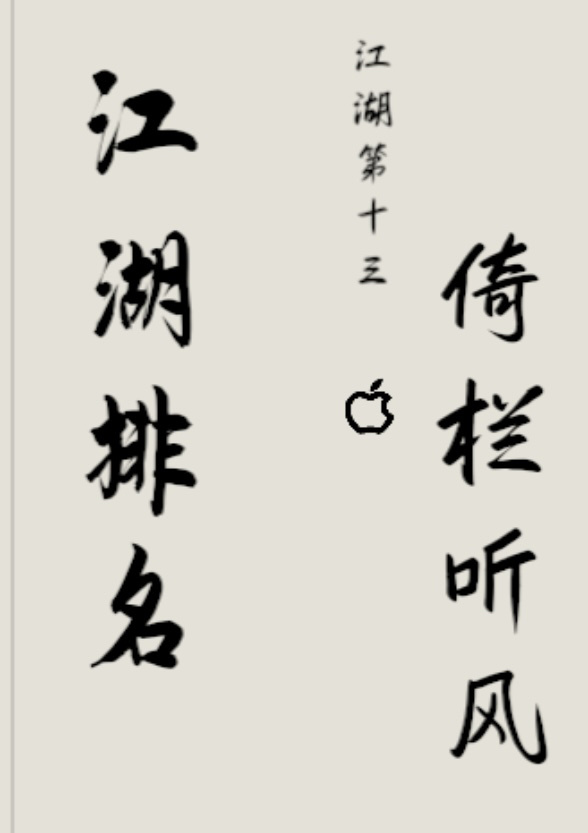 倚栏听风
江湖第十三
江湖排名